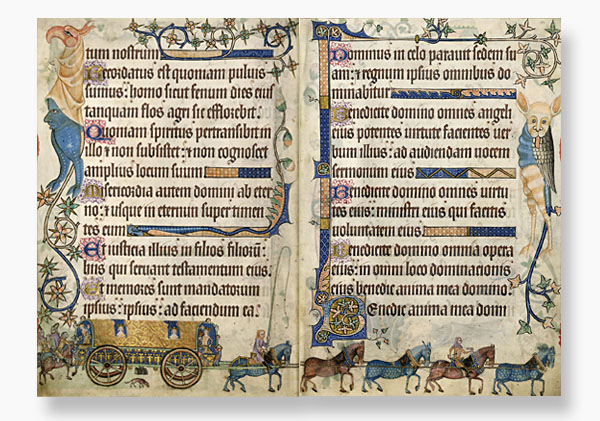 tum nostrum
Recordatus est quoniam puluis
sumus: homo sicut fenum dies eius
tanquam flos agri sic efflorebit.
Quoniam spiritus pertransibit in
illo ⁊ non subsistet: ⁊ non cognoscet
amplius locum suum
Misericordia autem domini ab eter
no: ⁊ usque in eternum super timen
tes eum
Et iusticia illius in filios filiorum:
hiis qui seruant testamentum eius.
Et memores sunt mandatorum
ipsius: ipsius: ad faciendum ea.
Dominus in celo parauit sedem su
am: ⁊ regnum ipsius omnibus do
minabitur
Benedicite domino omnes angeli
eius potentes uirtute facientes uer
bum illius: ad audiendam uocem
sermonum eius
Benedicite domino omnes uirtu
tes eius: ministri eius qui facitis
uoluntatem eius
Benedicite domino omnia opera
eius: in omni loco dominacionis
eius benedic anima mea domino.
Benedic anima mea domi